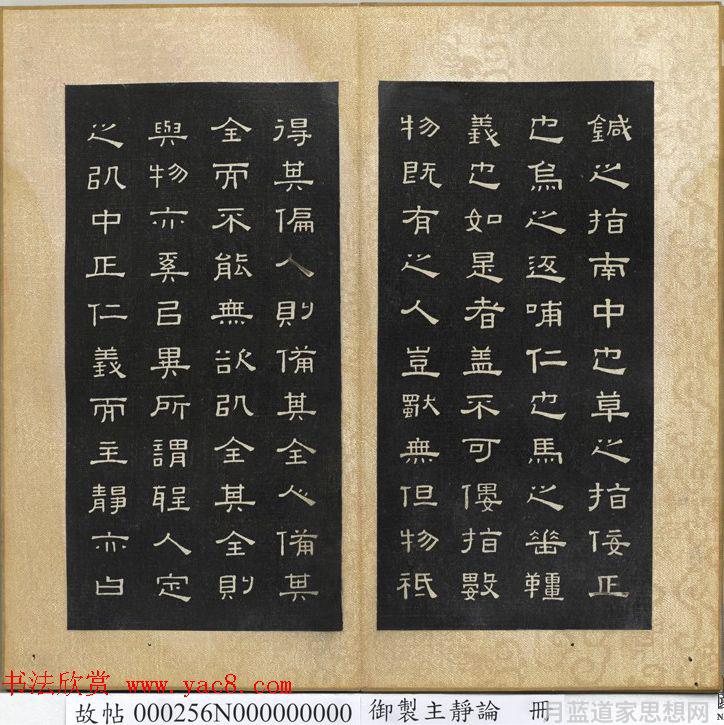 鍼之指南中也草之指佞正
也烏之返哺仁也馬之垂韁
義也如是者盖不可僂指數
物既有之人豈獨無但物祇
得其偏人則備其全人備其
全而不能無欲以全其全則
與物亦奚以異所謂聖人定
之以中正仁義而主靜亦曰
书法欣赏 www.yac8.com
故帖 000256N000000000 御製主靜論 冊
月蓝道家思想网